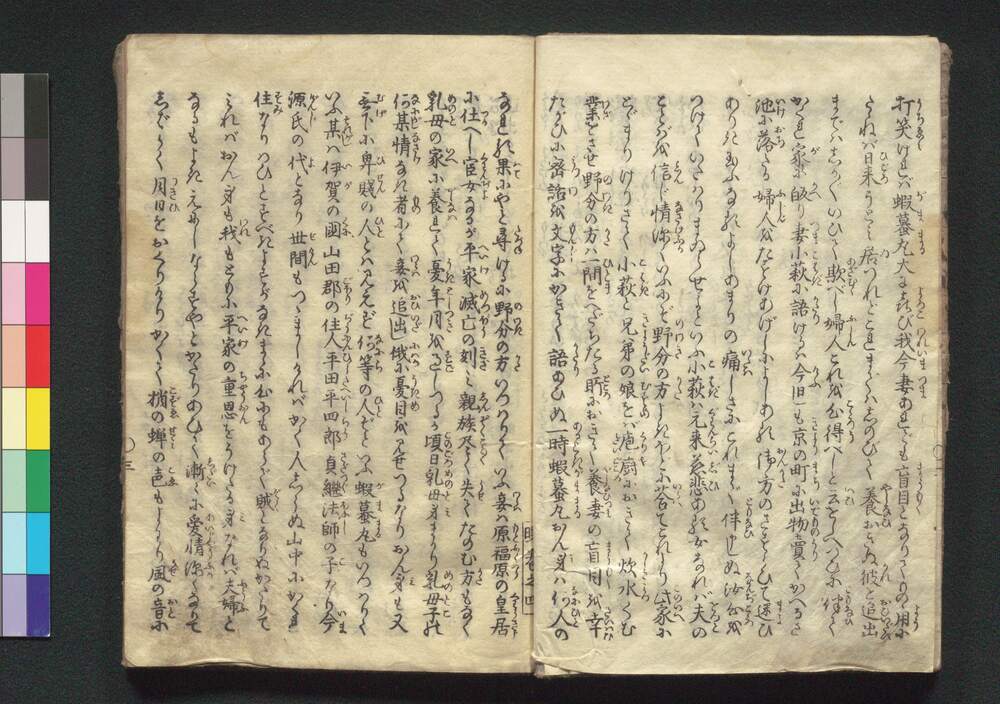 打笑けれバ蝦蟇丸大によろこび我今妻あれども盲目となりてものゝ用に
たゝねバ日来うとく居つれどこれまでハしのびて養おきぬ彼を追出
までハしか〴〵いひて欺べし婦人これを心得べしと云をしへつひに伴て
かくれ家に皈り妻小萩に語けるハ今日しも京の町に出物賣てかへるさ
池に落たる婦人をたすけあげしによしあれ御方のさまにて迷ひ
ありきたまふなれバあまりの痛しさにこれまで伴申しぬ汝心を
つけていたはりまゐらせよといふ小萩ハ元来慈悲ある女なれバ夫の
ことばを信じ情深くいふにぞ野分の方よきに答てこれより此家に
とゞまりけりさて小萩と兄弟の娘をバ庖厨におきて炊水くむ
業をさせ野分の方ハ一間をへだちたる所におきて養妻の盲目を幸
たがひに密語を文字にかきて語あひぬ一時蝦蟇丸おん身ハ何人の
なれる果にやと尋けるに野分の方いつはりていふ妾ハ原福原の皇居
に仕へし官女なるが平家滅亡の刻ミ親族尽く失てたのむ方もなく
乳母の家に養れて憂年月をすごしつるが頃日乳母身まかり乳母子の
何某情なき者にて妾を追出し俄に憂目を見せつるなりおん身も又
無下に卑賤の人とハ見えず何等の人ぞといふ蝦蟇丸もいつはりて
いふ某ハ伊賀の國山田郡の住人平田平四郎貞継法師の子なり今
源氏の代となり世間もつゝましけれバかく人しらぬ山中にかくれ
住なりつひとすべきよすがなきまゝに心にもあらで賊となりぬかゝりて
あれバおん身も我ももともに平家の重恩をうけたる身なれバ夫婦と
なるもよきえにしならずやとかたりあひて漸々に愛情深くなりて
しばらく月日をおくりけりかくて梢の蝉の声もよわり風の音に